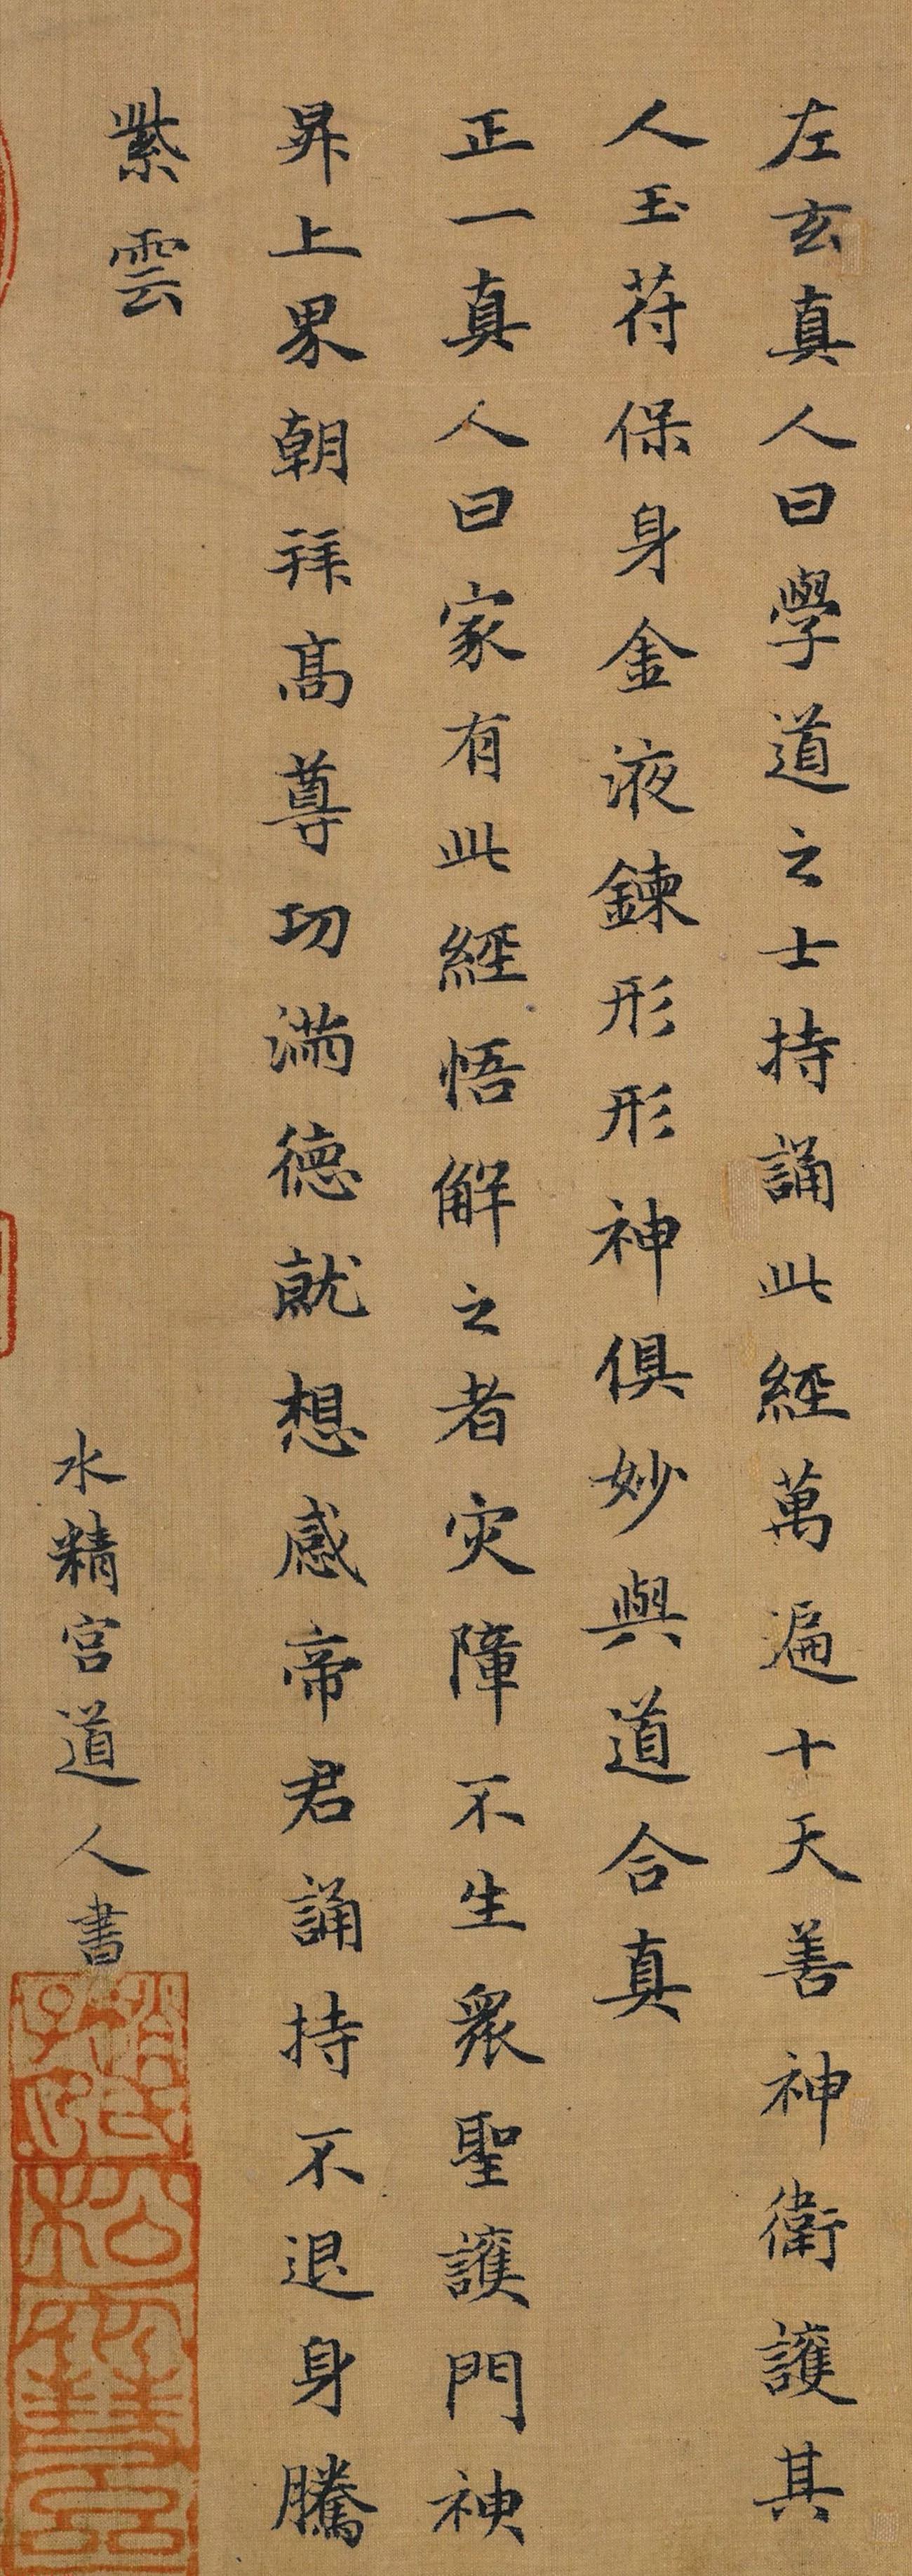 左玄真人曰學道之士持誦此經萬遍十天善神衛護其
人玉苻保身金液鍊形形神俱妙與道合真
正一真人曰家有此經悟解之者灾障不生衆聖護門神
昇上界朝拜髙尊功滿德就想感帝君誦持不退身騰
紫雲
水精宮道人書
趙氏子昂
松雪齋